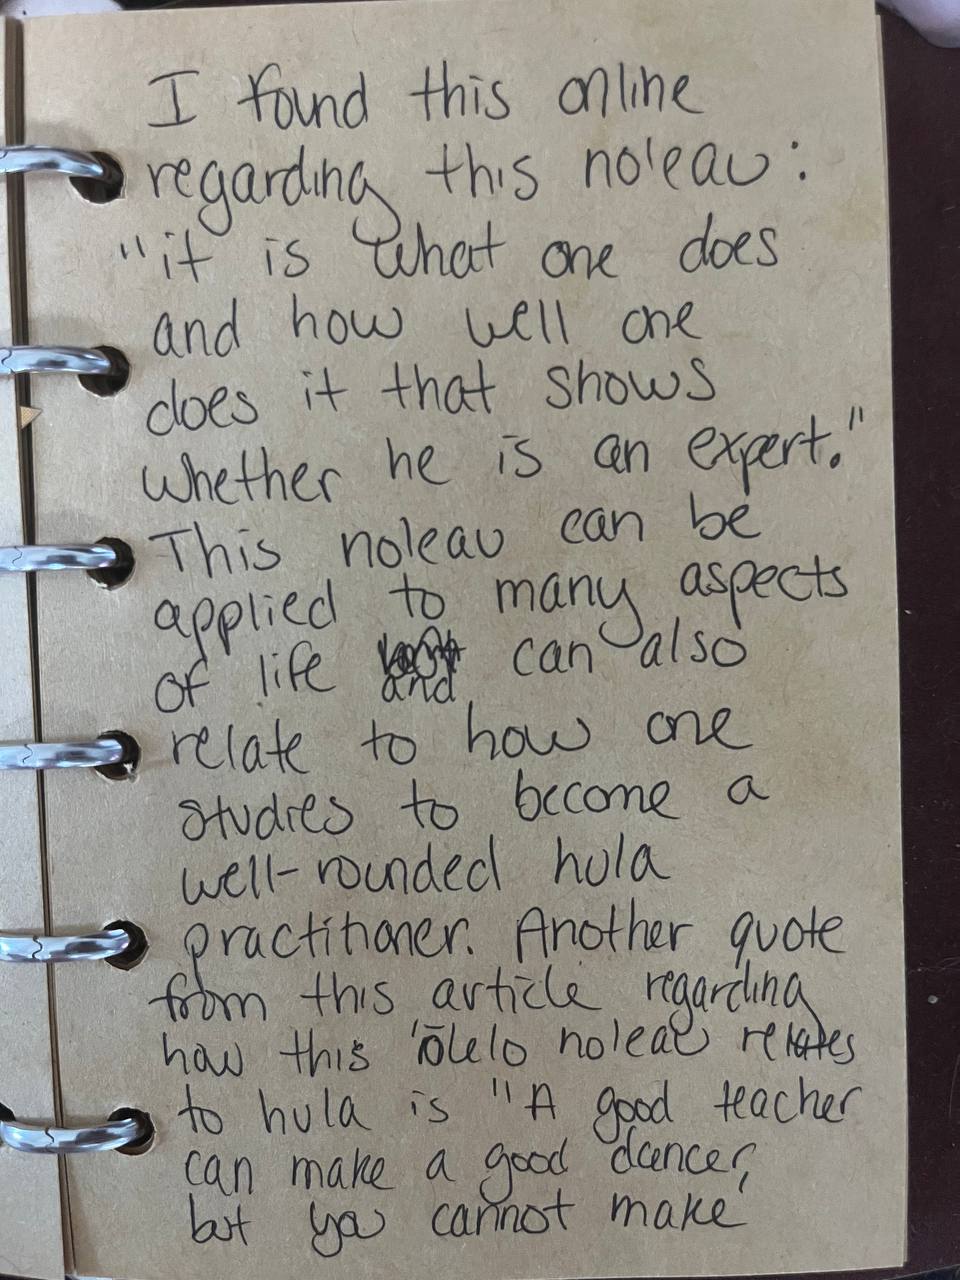 I found this online
regarding this no'eau:
"it is what one does
and how well one
does it that shows
whether he is an expert."
This noleau can be
applied to many aspects
of life and can also
relate to how one
studies to become a
well-rounded hula
practitioner. Another quote
from this article regarding
how this 'ōlelo no'eau relates
to hula is "A good teacher
can make a good dancer,
but you cannot make